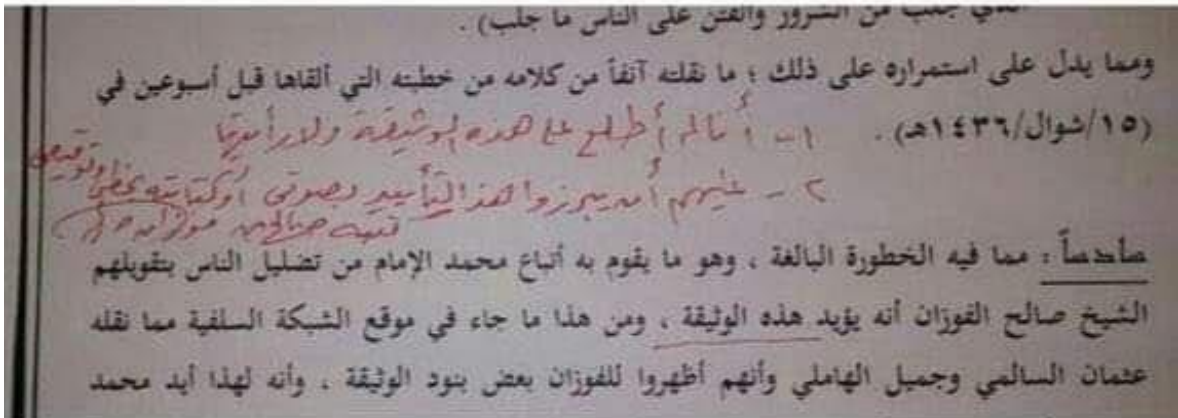 الذي جلب من الشرور والفتن على الناس ما جلب) .
ومما يدل على استمراره على ذلك ؛ ما نقلته آنفاً من كلامه من خطبته التي ألقاها قبل أسبوعين في
(١٥/شوال/١٤٣٦هـ) .
١ - أنا لم أطلع على هذه الوثيقة ولا رأيتها
٢ - عليهم أن يبرزوا هذا التأييد بصوتي أو كتابته بخطي وتوقيعي
كتبه صالح بن فوزان
سادساً : مما فيه الخطورة البالغة ، وهو ما يقوم به أتباع محمد الإمام من تضليل الناس بتقويلهم
الشيخ صالح الفوزان أنه يؤيد هذه الوثيقة ، ومن هذا ما جاء في موقع الشبكة السلفية مما نقله
عثمان السالمي وجميل الهاملي وأنهم أظهروا للفوزان بعض بنود الوثيقة ، وأنه لهذا أيد محمد